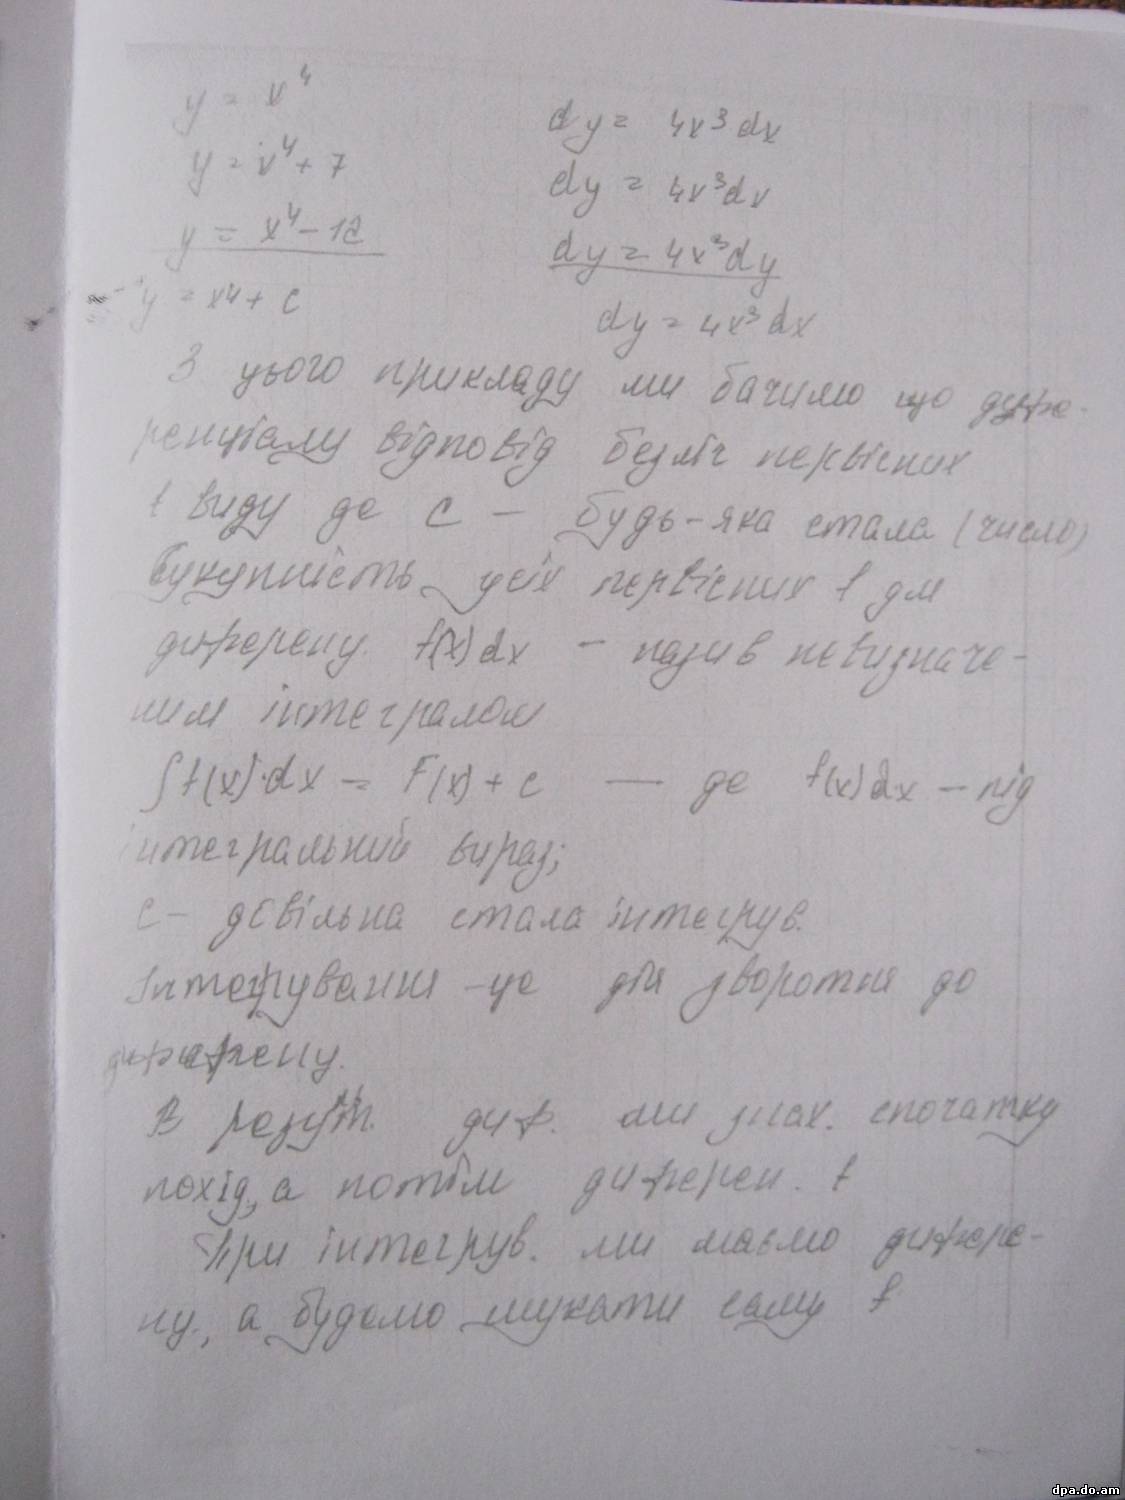 y = x⁴ dy = 4x³dx
y = x⁴ + 7 dy = 4x³dx
y = x⁴ – 12 dy = 4x³dy
y = x⁴ + c dy = 4x³dx
З цього прикладу ми бачимо що дифе-
ренціалу відповід безліч первісних
f виду де c – будь-яка стала (число)
Сукупність усіх первісних f для
диференц. f(x)dx – назив невизначе-
ним інтегралом
∫f(x)·dx = F(x) + c — де f(x)dx – під
інтегральний вираз;
c – довільна стала інтегрув.
Інтегрування – це дія зворотня до
диференц.
В результ. диф. ми знах. спочатку
похід, а потім диферен. f
При інтегрув. ми маємо дифере-
нц., а будемо шукати саму f
dpa.do.am